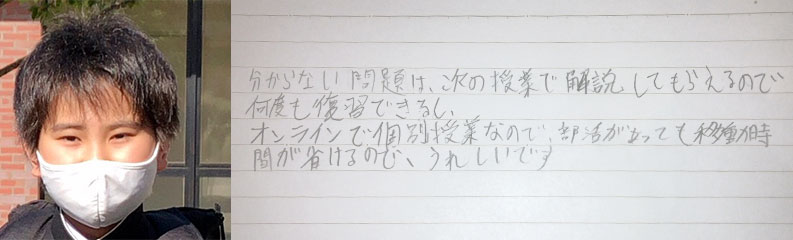 分からない問題は、次の授業で解説してもらえるので
何度も復習できるし、
オンラインで個別授業なので、部活があっても移動時
間が省けるので、うれしいです